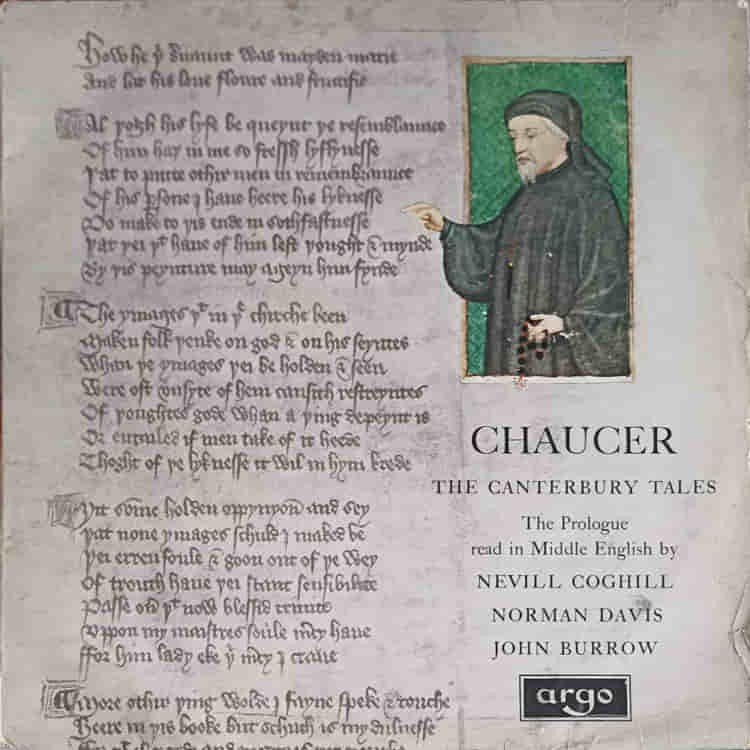 How he þͥ s'uaunt was mayden marie
And lat his loue floure and fructifie
Al þogh his lyfe be queynt þe resemblaunce
Of him haþ in me so fressh lyflynesse
Þat to putte othir men in remembraunce
Of his p̱sone I haue heere his lyknesse
Do make to þis ende in sothfastnesse
Þat þei þᵗ haue of him lest þought & mynde
By þis peynture may ageyn him fynde
The ymages þᵗ in þͤ chirche been
Maken folk þenke on god & on his seyntes
Whan þe ymages þei be holden & seen
Were oft vnsyte of hem causith restreyntes
Of þoughtes gode whan a þing depeynt is
Or entailed if men take of it heede
Thoght of þe lyknesse it wil in hym brede
Yit some holden oppynyoū and sey
Þat none ymages schuld I maked be
Þei erren foule & goon out of þe wey
Of trouth haue þei scant sensibilite
Passe oū þᵗ now blessid trinite
Vppon my maistres soule m̄cy haue
ffor him lady eke þͥ m̄cy I craue
More othir þing wolde I fayne speke & touche
Heere in þis booke but schuch is my dulnesse
CHAUCER
THE CANTERBURY TALES
The Prologue
read in Middle English by
NEVILL COGHILL
NORMAN DAVIS
JOHN BURROW
argo